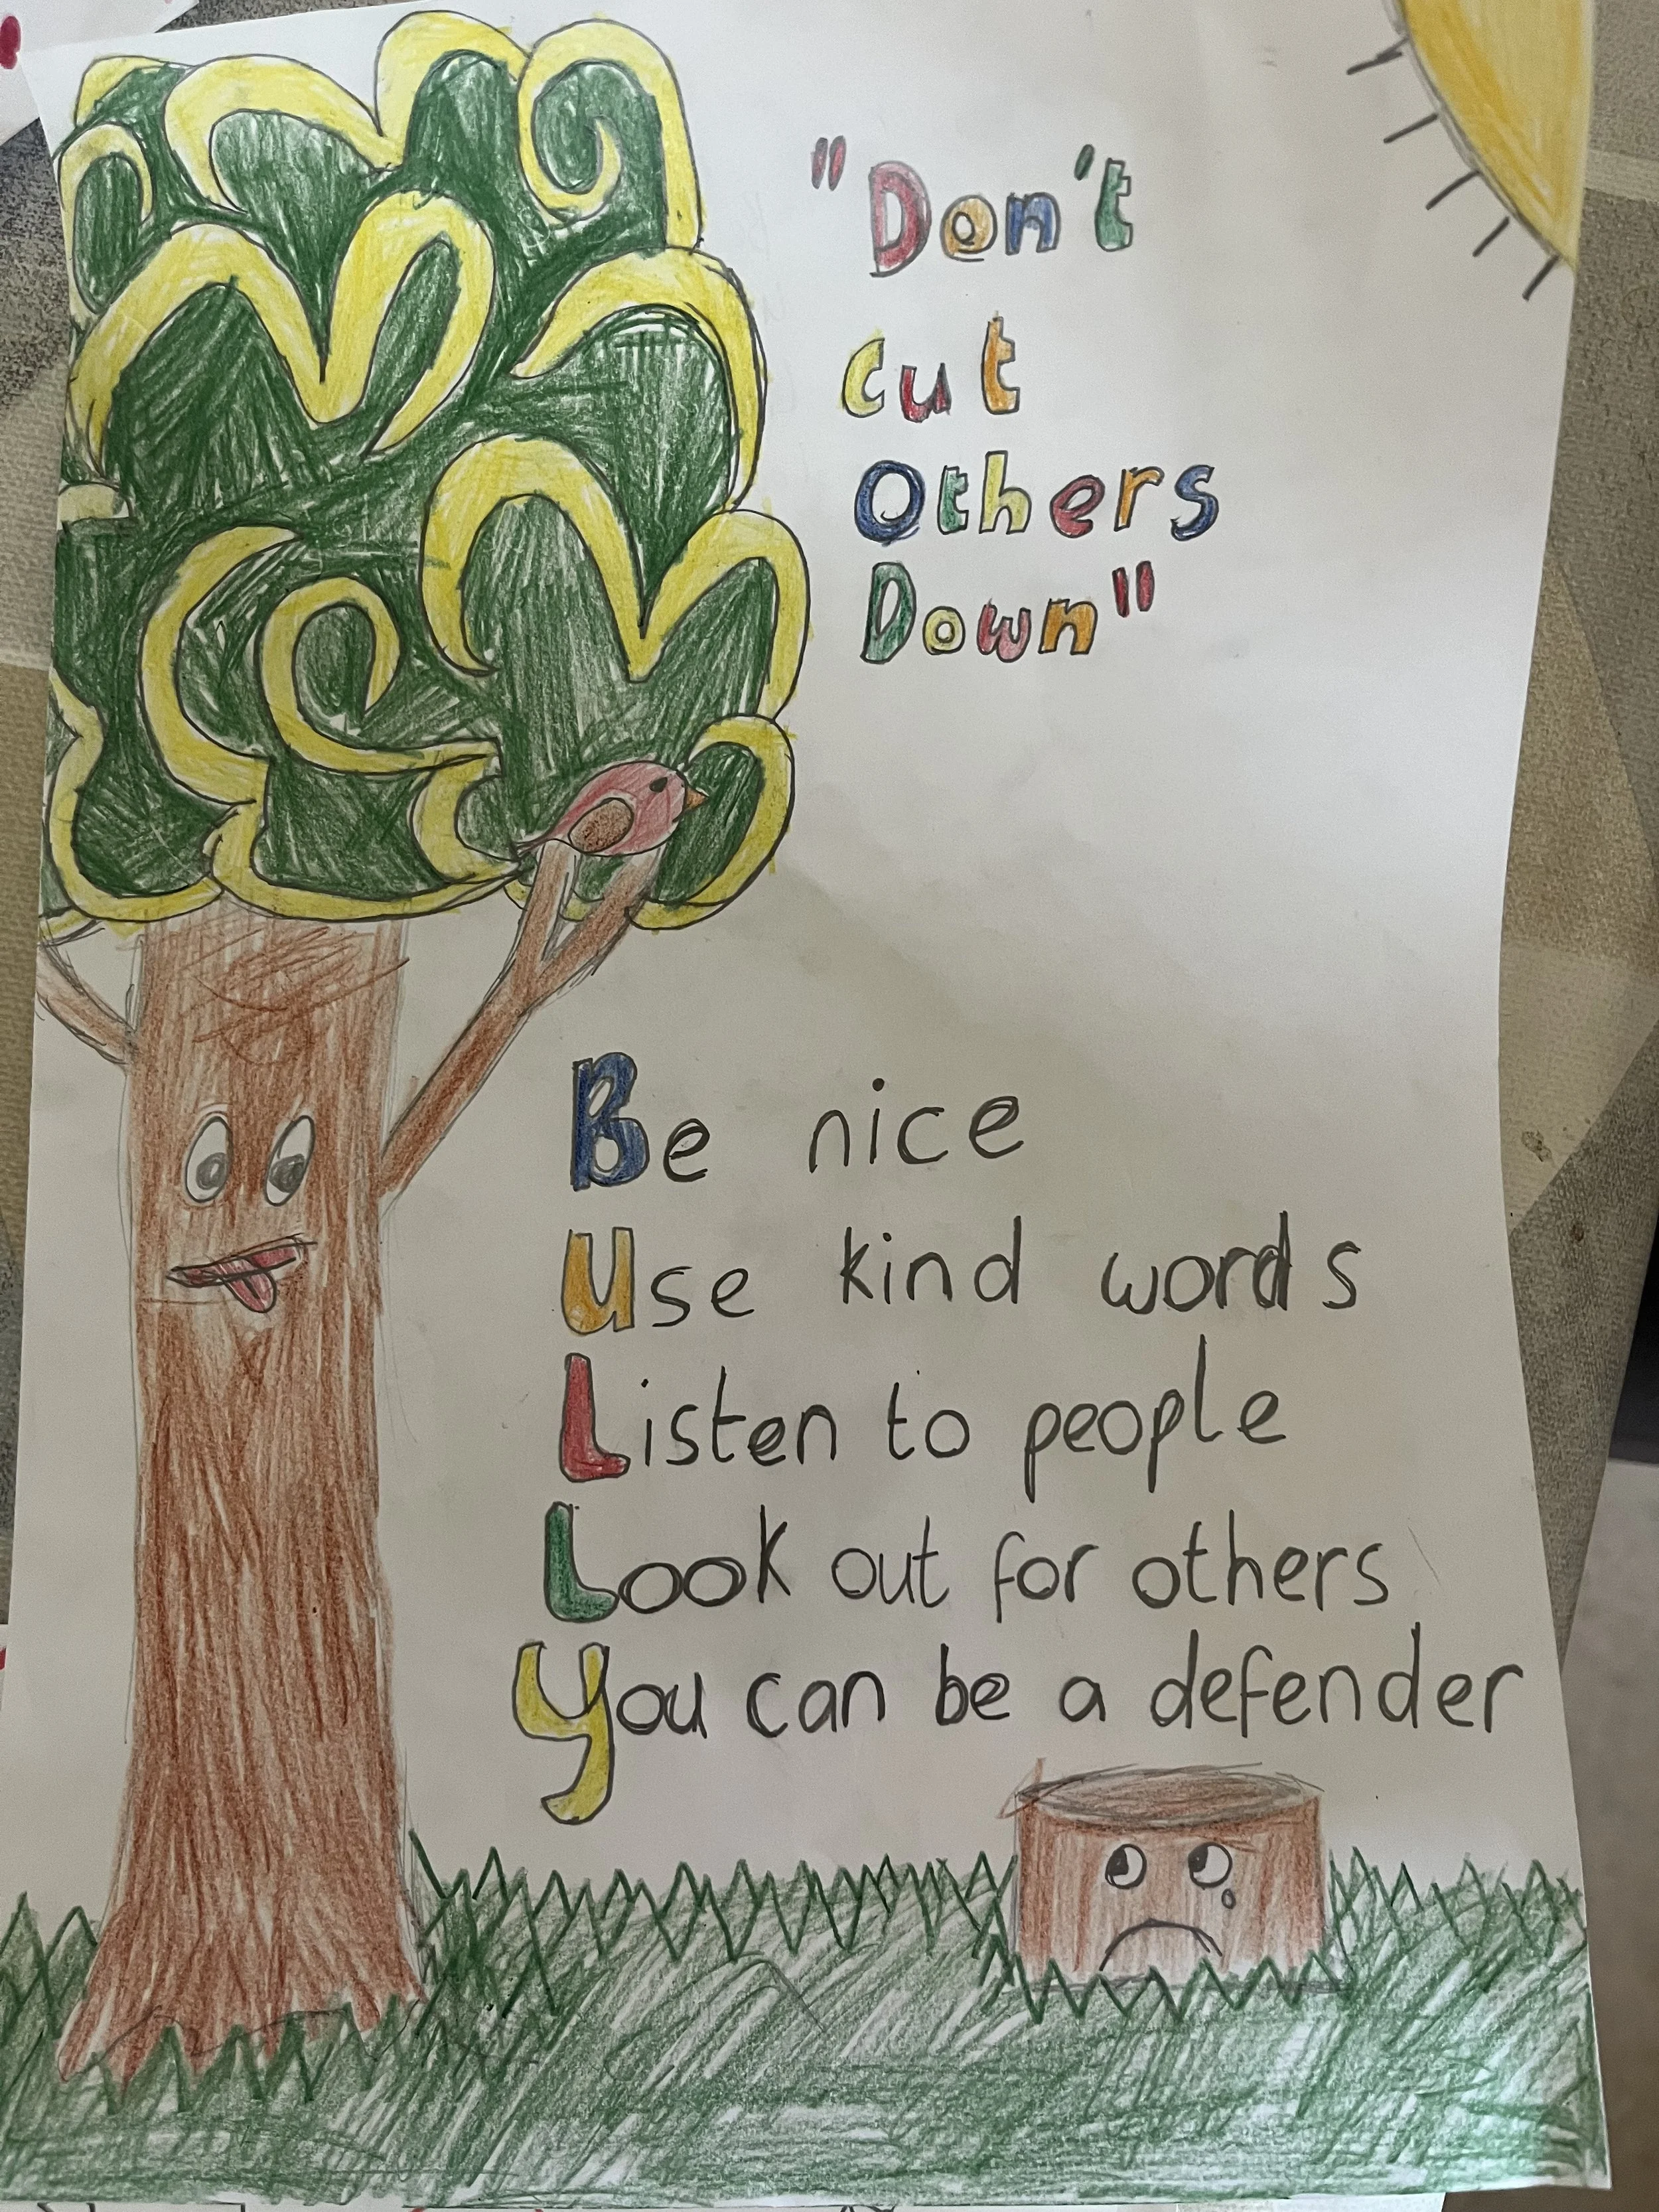 "Don't
Cut
Others
Down"
Be nice
Use kind words
Listen to people
Look out for others
You can be a defender